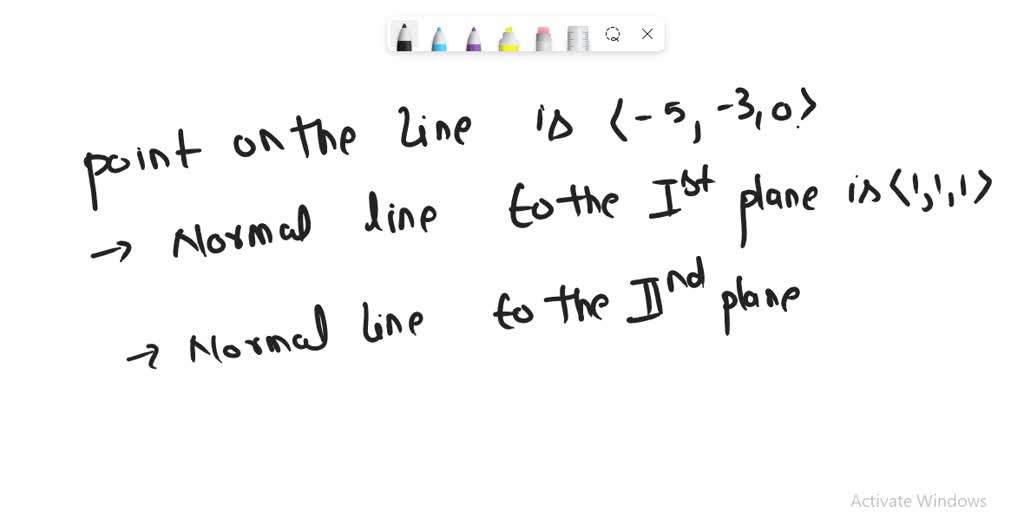 point on the line is ⟨-5, -3, 0⟩
→ Normal line to the Ist plane is ⟨1, 1, 1⟩
→ Normal line to the IInd plane
Activate Windows